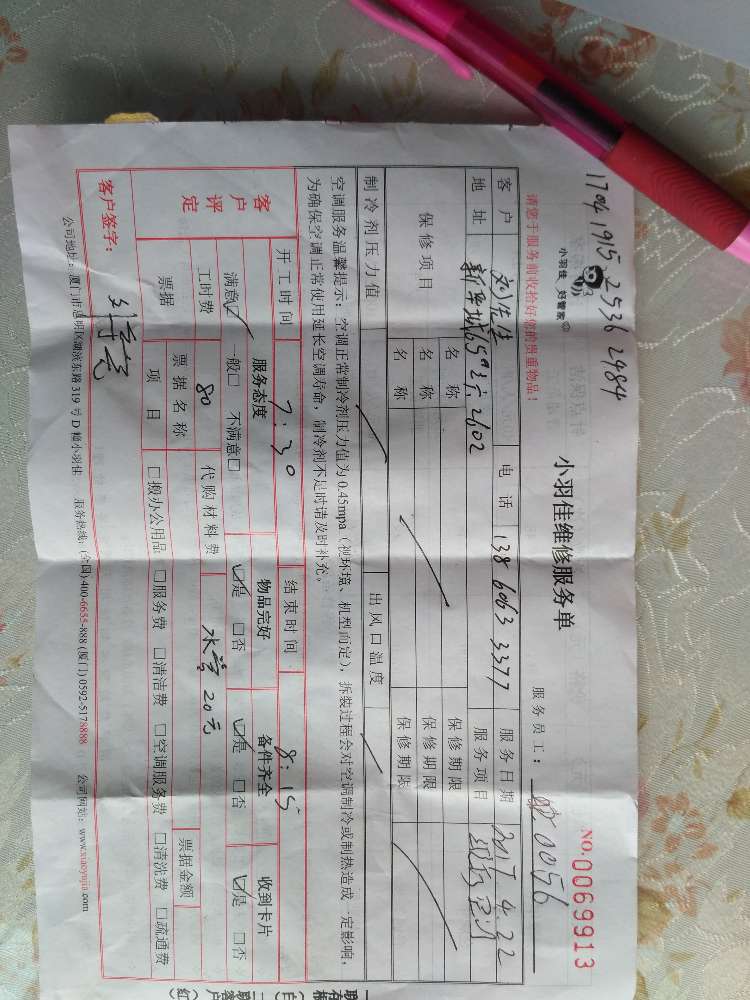 1704 1915 2536 2984
小羽佳 好管家
小羽佳维修服务单
NO.0069913
请您于服务前收拾好您的贵重物品!
服务员工: 0056
客户 刘佳佳 电话 138 6063 3377 服务日期 2017.4.22
地址 2602 服务项目
保修项目 名称 保修期限
保修期限
名称 保修期限
制冷剂压力值 出风口温度
空调服务温馨提示:空调正常制冷剂压力值为0.45mpa(视环境、机型而定),拆装过程会对空调制冷或制热造成一定影响,
为确保空调正常使用延长空调寿命,制冷剂不足时请及时补充。
开工时间 7:30 结束时间 8:15
客户评定 服务态度 物品完好 备件齐全 收到卡片
满意☑ 一般□ 不满意□ ☑是 □否 ☑是 □否 ☑是 □否
工时费 80 代购材料费 水管20元
票据 票据名称 票据金额
项目 □搬办公用品 □服务费 □清洁费 □空调服务费 □清洗费 □疏通费
客户签字:
公司地址:厦门市思明区湖滨东路319号D幢小羽佳 服务热线:(全国)400-6655-888 (厦门)0592-5178888 公司网站:www.xiaoyujia.com